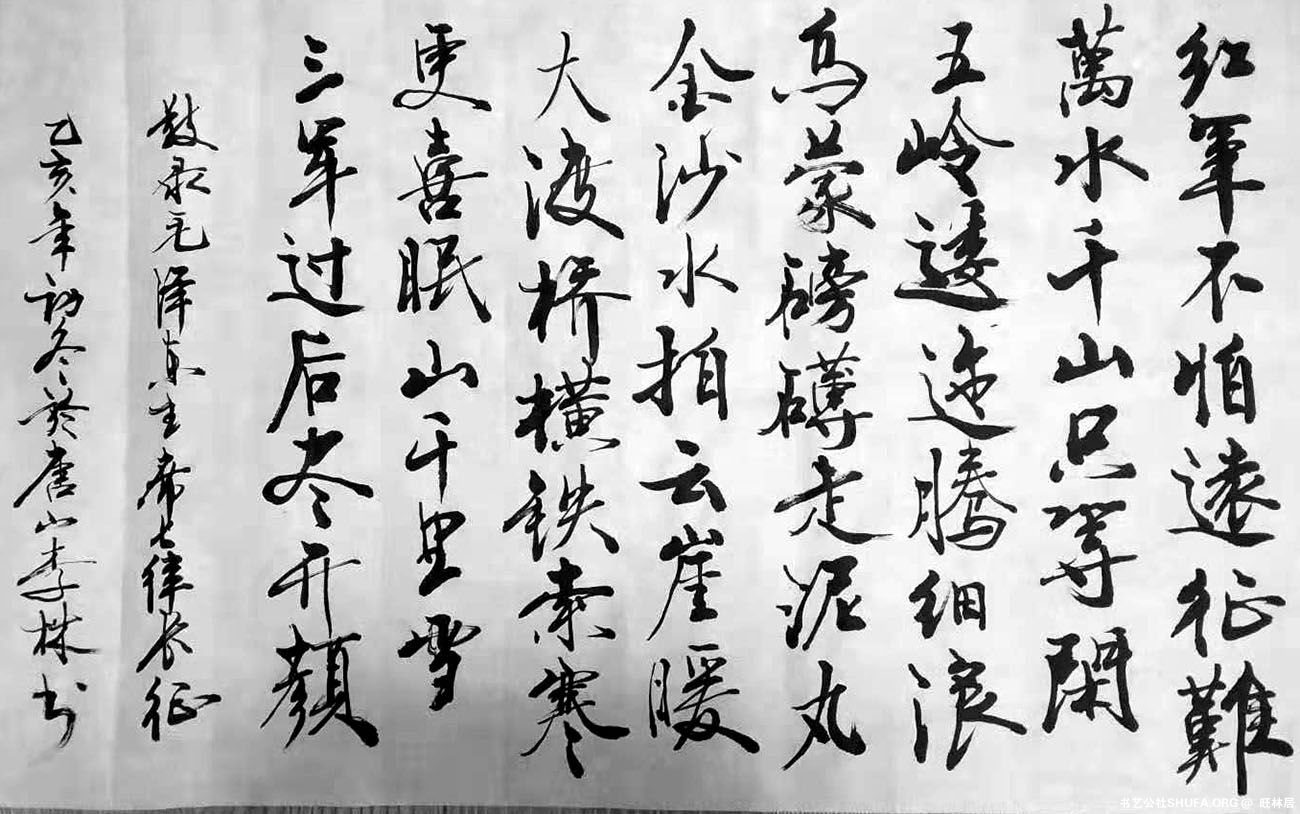 红軍不怕遠征難
萬水千山只等閑
五岭逶迤腾细浪
乌蒙磅礴走泥丸
金沙水拍云崖暖
大渡桥横铁索寒
更喜眠山千里雪
三军过后尽开颜
敬录毛泽东主席七律长征
乙亥年初冬於唐山李株书
书艺公社SHUFA.ORG @ 旺林居